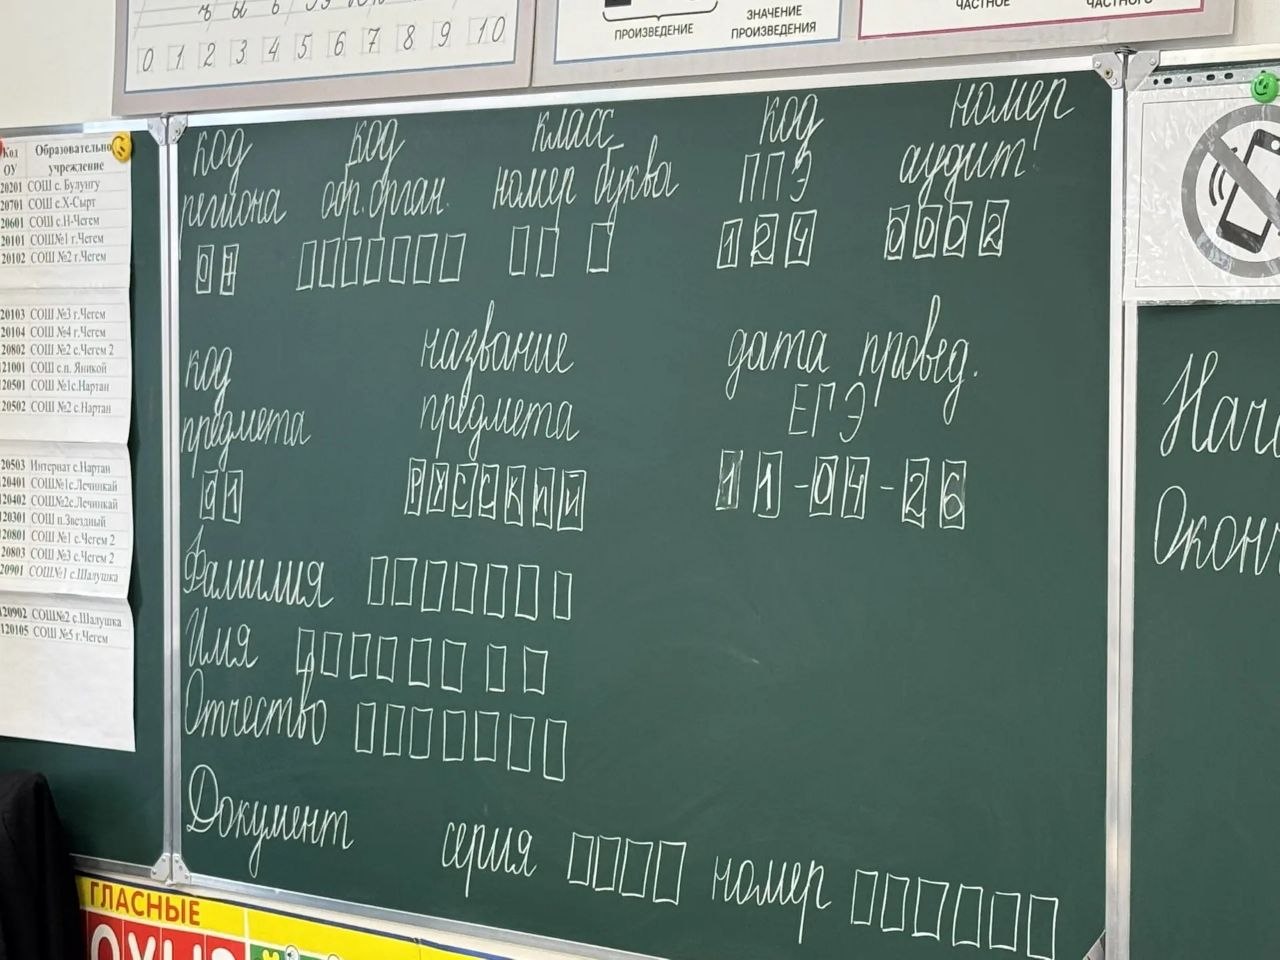 0 1 2 3 4 5 6 7 8 9 10
ПРОИЗВЕДЕНИЕ
ЗНАЧЕНИЕ
ПРОИЗВЕДЕНИЯ
ЧАСТНОЕ
ЧАСТНОГО
Код ОУ Образовательно учреждение
20201 СОШ с. Булунгу
20701 СОШ с.Х-Сырт
20601 СОШ с.Н-Чегем
20101 СОШ№1 г.Чегем
20102 СОШ №2 г.Чегем
20103 СОШ №3 г.Чегем
20104 СОШ №4 г.Чегем
20802 СОШ №2 с.Чегем 2
21001 СОШ с.п. Яникой
20501 СОШ №1с.Нартан
20502 СОШ №2 с.Нартан
20503 Интернат с.Нартан
20401 СОШ№1с.Лечинкай
20402 СОШ№2с.Лечинкай
20301 СОШ п.Звездный
20801 СОШ №1 с.Чегем 2
20803 СОШ №3 с.Чегем 2
20901 СОШ№1 с.Шалушка
120902 СОШ№2 с.Шалушка
120105 СОШ №5 г.Чегем
код код класс код номер
региона обр.орган. номер буква ППЭ аудит.
07 124 0002
код название дата провед.
предмета предмета ЕГЭ
01 РУССКИЙ 11-04-26
Фамилия
Имя
Отчество
Документ серия номер
ГЛАСНЫЕ